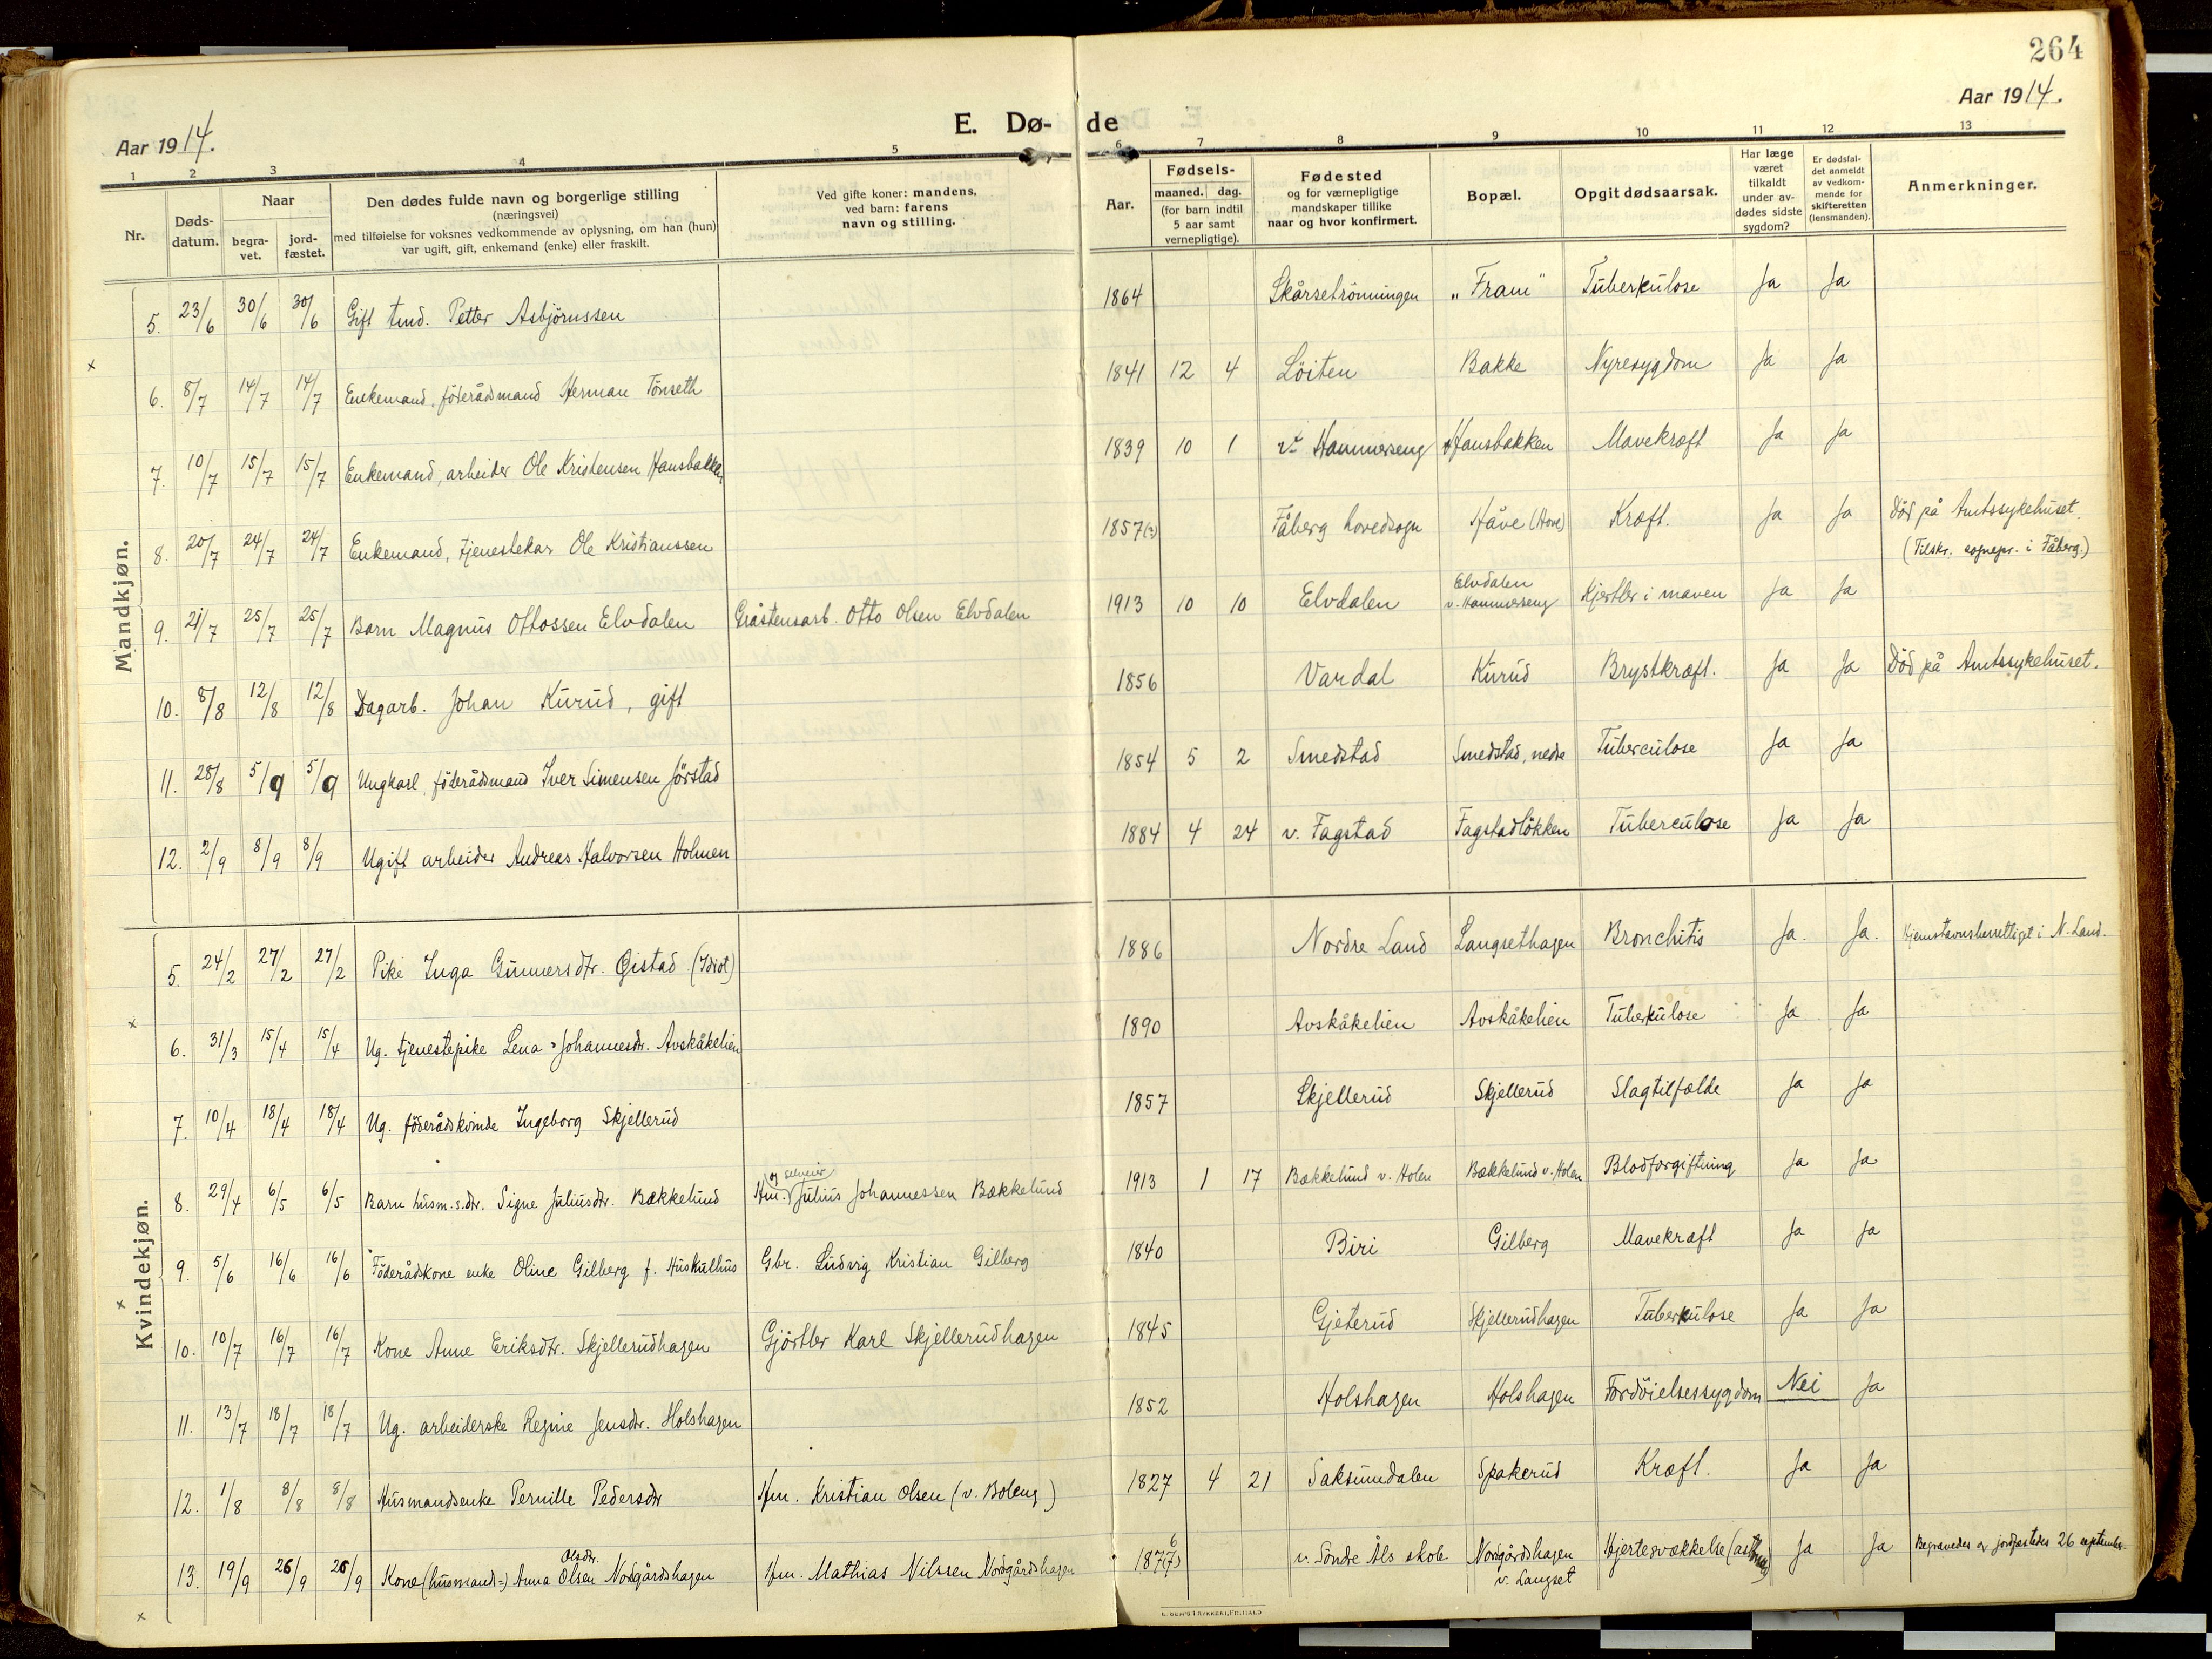 264
Aar 1914.
E. Dø-de
Aar 1914.
1 2 3 4 5 6 7 8 9 10 11 12 13
Nr.
Døds-datum.
Naar
begra-vet.
jord-fæstet.
Den dødes fulde navn og borgerlige stilling
(næringsvei)
med tilføielse for voksnes vedkommende av oplysning, om han (hun)
var ugift, gift, enkemand (enke) eller fraskilt.
Ved gifte koner: mandens,
ved barn: farens
navn og stilling.
Aar.
Fødsels-
maaned. dag.
(for barn indtil
5 aar samt
vernepligtige).
Fødested
og for værnepligtige
mandskaper tillike
naar og hvor konfirmert.
Bopæl.
Opgit dødsaarsak.
Har læge
været
tilkaldt
under av-
dødes sidste
sygdom?
Er dødsfal-
det anmeldt
av vedkom-
mende for
skifteretten
(lensmanden).
Anmerkninger.
Mandkjøn.
5. 23/6 30/6 30/6 Gift tmd. Petter Asbjörnssen 1864 Skårsetrönningen "Fram" Tuberkulose Ja Ja
x
6. 8/7 14/7 14/7 Enkemand, föderådsmand Herman Tönseth 1841 12 4 Löiten Bakke Nyresygdom Ja Ja
7. 10/7 15/7 15/7 Enkemand, arbeider Ole Kristensen Hansbakken 1839 10 1 v. Hammerseng Hansbakken Mavekræft Ja Ja
8. 20/7 24/7 24/7 Enkemand, tjenestekar Ole Kristianssen 1857(?) Fåberg hovedsogn Håve (Hove) Kræft. Ja Ja Död på Amtssykehuset.
(Tilskr. sognepr. i Fåberg.)
9. 21/7 25/7 25/7 Barn Magnus Ottossen Elvdalen Gråstensarb. Otto Olsen Elvdalen 1913 10 10 Elvdalen Elvdalen v. Hammerseng Kjertler i maven Ja Ja
10. 8/8 12/8 12/8 Dagarb. Johan Kurud, gift 1856 Vardal Kurud Brystkræft. Ja Ja Död på Amtssykehuset.
11. 28/8 5/9 5/9 Ungkarl, föderådsmand Iver Simensen Jörstad 1854 5 2 Smedstad Smedstad, nedre Tuberculose Ja Ja
12. 2/9 8/9 8/9 Ugift arbeider Andreas Halvorsen Holmen 1884 4 24 v. Fagstad Fagstadlökken Tuberculose Ja Ja
Kvindekjøn.
5. 24/2 27/2 27/2 Pike Inga Gunnersdtr. Gistad (Idiot) 1886 Nordre Land Langsethagen Bronchitis Ja. Ja. Hjemstavnsberettiget i N. Land.
x
6. 31/3 15/4 15/4 Ug. tjenestepike Lena Johannesdtr. Avskåkelien 1890 Avskåkelien Avskåkelien Tuberkulose Ja Ja
7. 10/4 18/4 18/4 Ug. föderådskvinde Ingeborg Skjellerud 1857 Skjellerud Skjellerud Slagtilfælde Ja Ja
8. 29/4 6/5 6/5 Barn husm.s.dtr. Signe Juliusdtr. Bækkelund Hm. og selveier Julius Johannessen Bækkelund 1913 1 17 Bækkelund v. Holen Bækkelund v. Holen Blodforgiftning Ja Ja
9. 5/6 16/6 16/6 Föderådkone enke Oline Gilberg f. Huskulhus Gbr. Ludvig Kristian Gilberg 1840 Biri Gilberg Mavekræft Ja Ja
x
10. 10/7 16/7 16/7 Kone Anne Eriksdtr. Skjellerudhagen Gjörtler Karl Skjellerudhagen 1845 Gjeterud Skjellerudhagen Tuberkulose Ja Ja
11. 13/7 18/7 18/7 Ug. arbeiderske Regine Jensdtr. Holshagen 1852 Holshagen Holshagen Fordöielsessygdom Nei Ja
12. 1/8 8/8 8/8 Husmandsenke Pernille Pedersdtr Hm. Kristian Olsen (v. Boleng) 1827 4 21 Saksumdalen Spakerud Kræft. Ja Ja
13. 19/9 26/9 26/9 Kone (husmand=) Anna Olsen Olsdtr. Nordgårdshagen Hm. Mathias Nilssen Nordgårdshagen 1877 6 v. Söndre Åls skole Nordgårdshagen v. Langset Hjertesvækkelse (asthma) Ja Ja Begravedes og jordfæstedes 26 september.
x